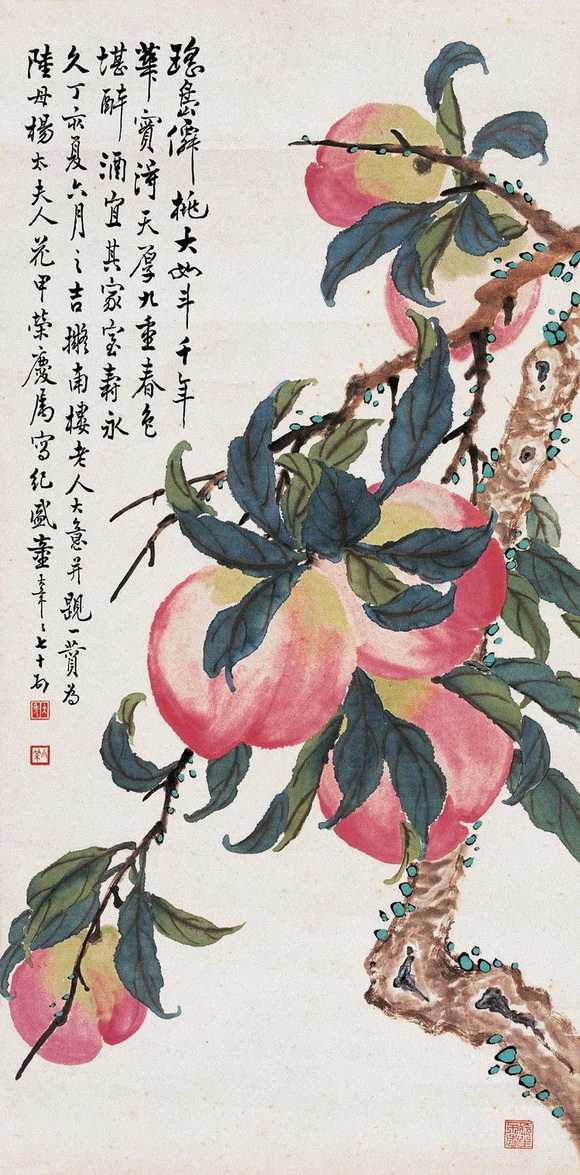 瑤島僊桃大如斗千年
華實淂天厚九重春色
堪醉酒宜其家室壽永
久丁亥夏六月之吉擬南樓老人大意并題一贊為
陸母楊太夫人花甲榮慶屬寫紀盛童大年七十